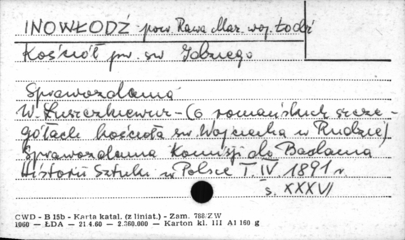 INOWŁÓDŹ pow. Rawa Maz. woj. Łódź
Kościół pw. św Idziego
Sprawozdania
W. Łuszczkiewicz - (o romańskich szcze-
gółach kościoła św Wojciecha w Rudzie)
Sprawozdania Komisji do Badania
Historii Sztuki w Polsce T. IV 1891 r
s. XXXVI
CWD - B 15b - Karta katal. (z liniat.) - Zam. 788/ZW
1060 — ŁDA — 21 4.60 - 2.360.000 — Karton kl. III A1 160 g